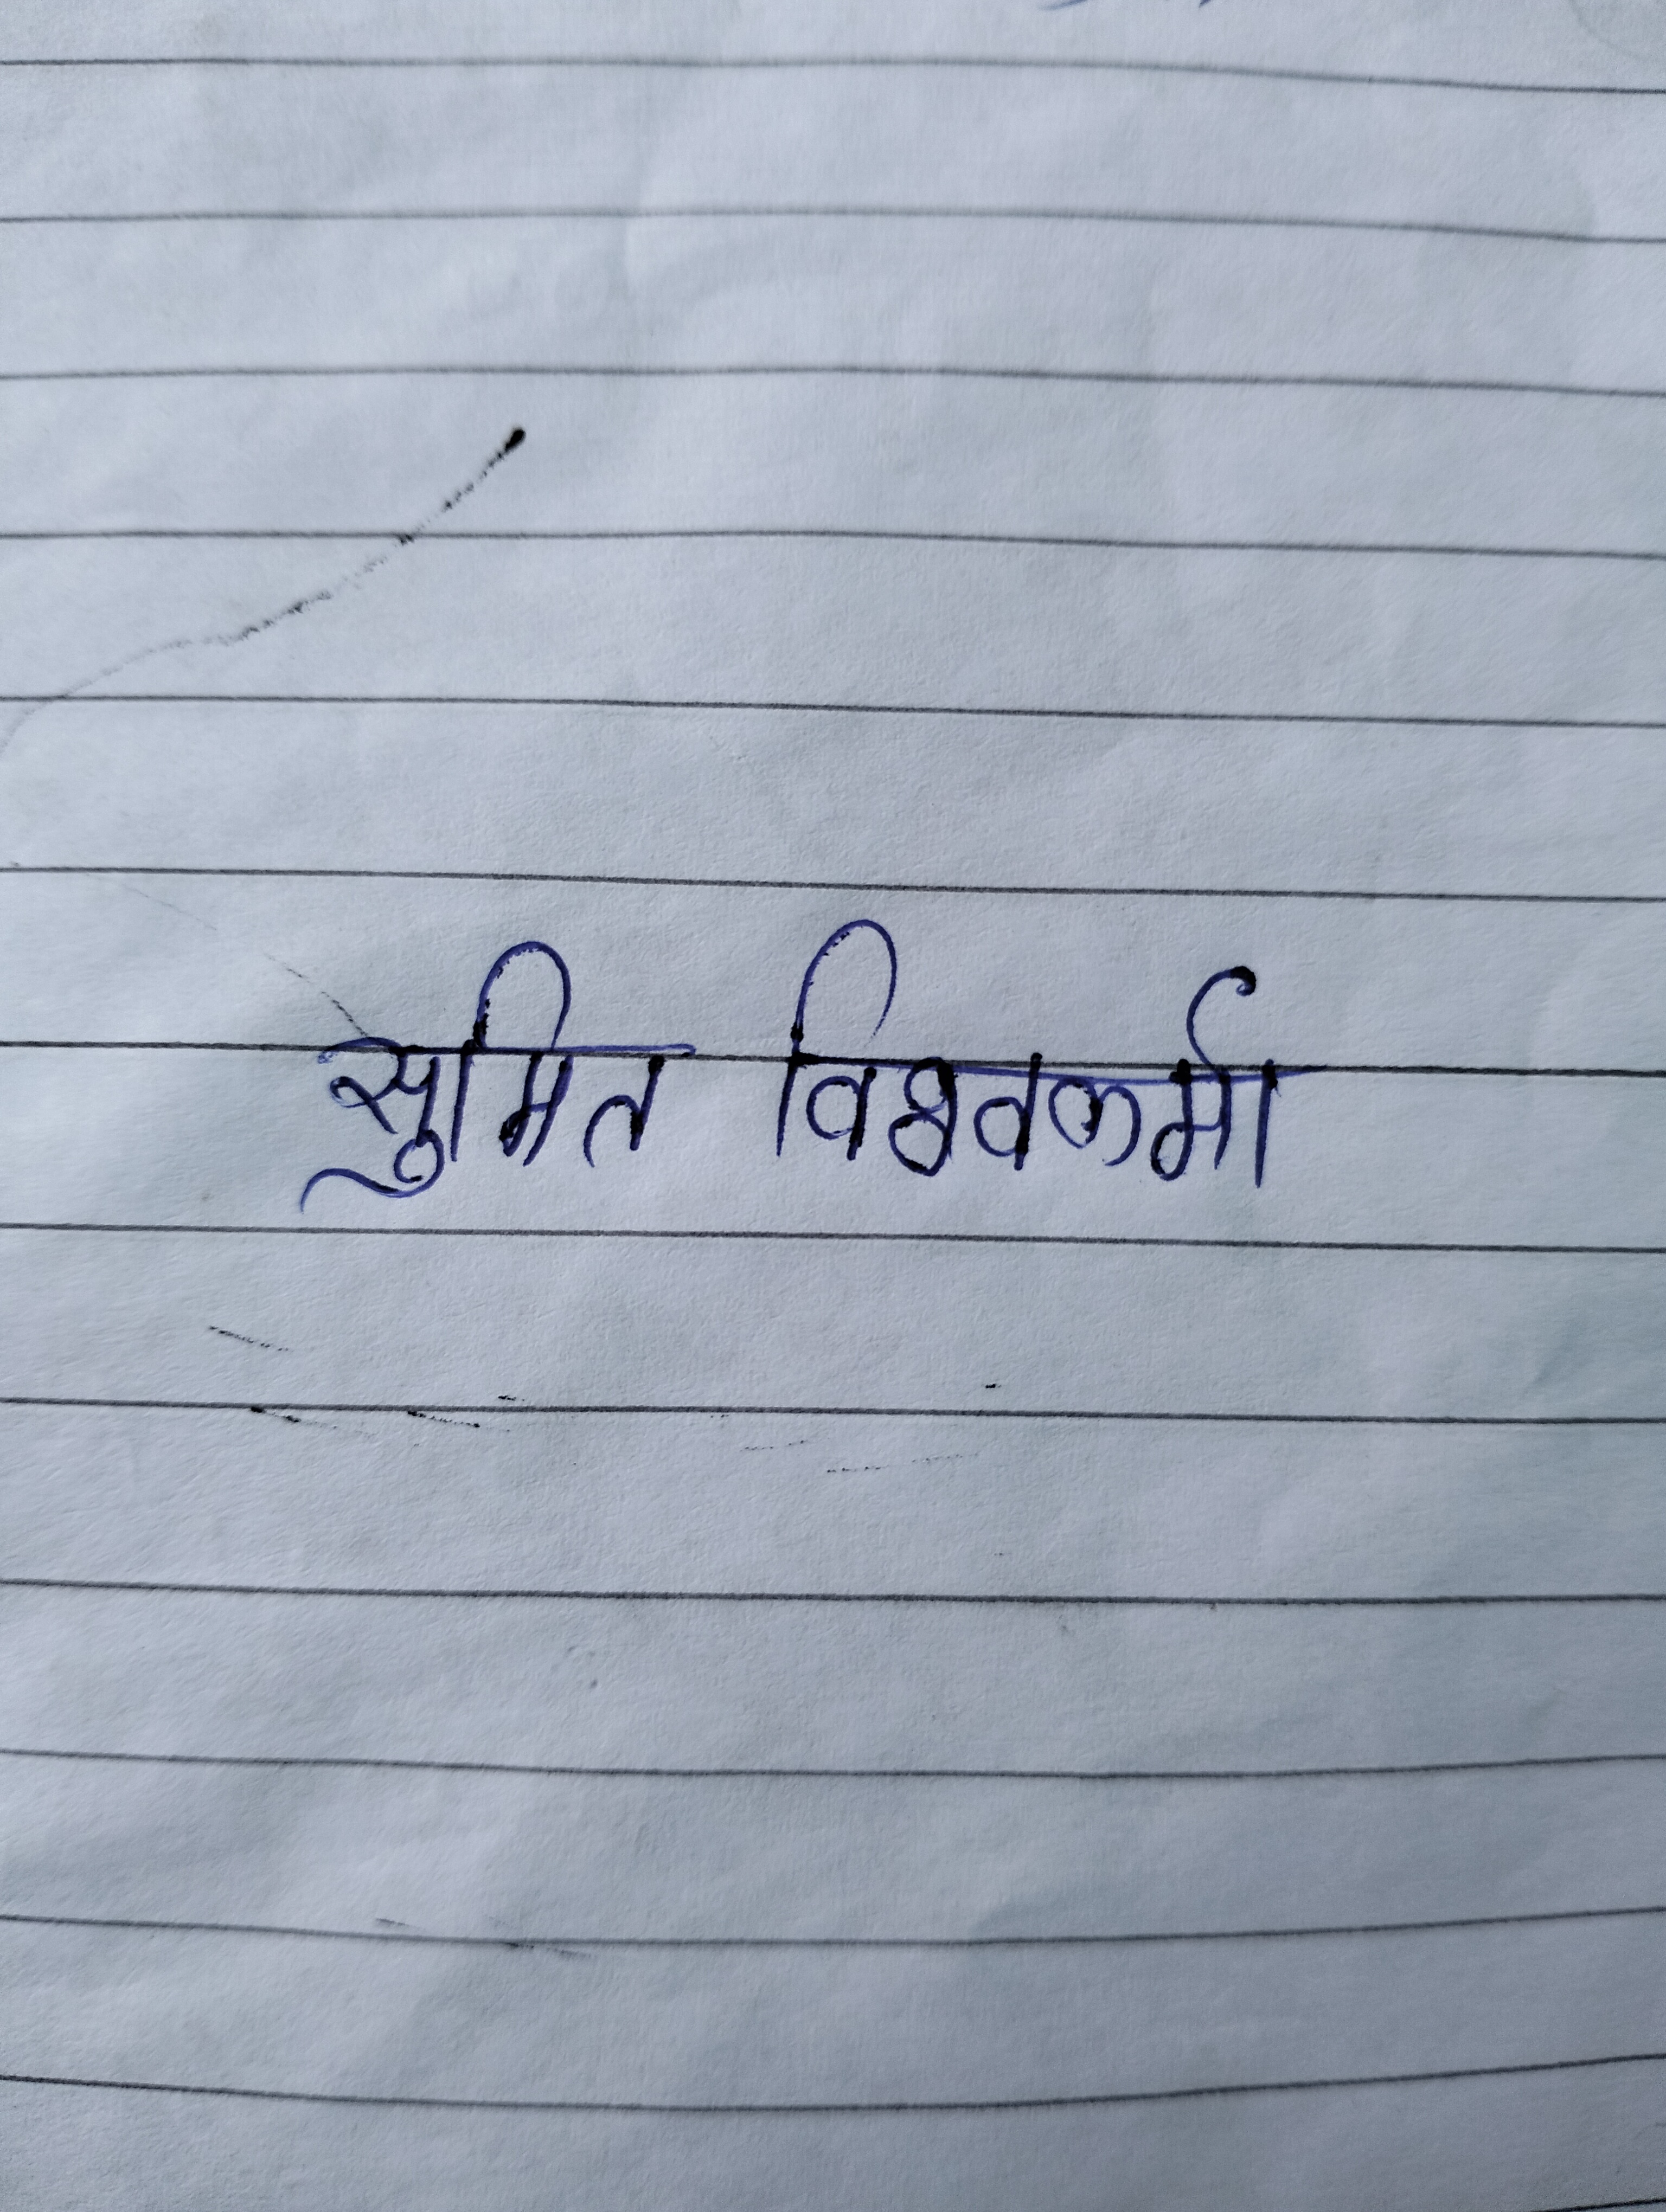 सुमित विश्वकर्मा